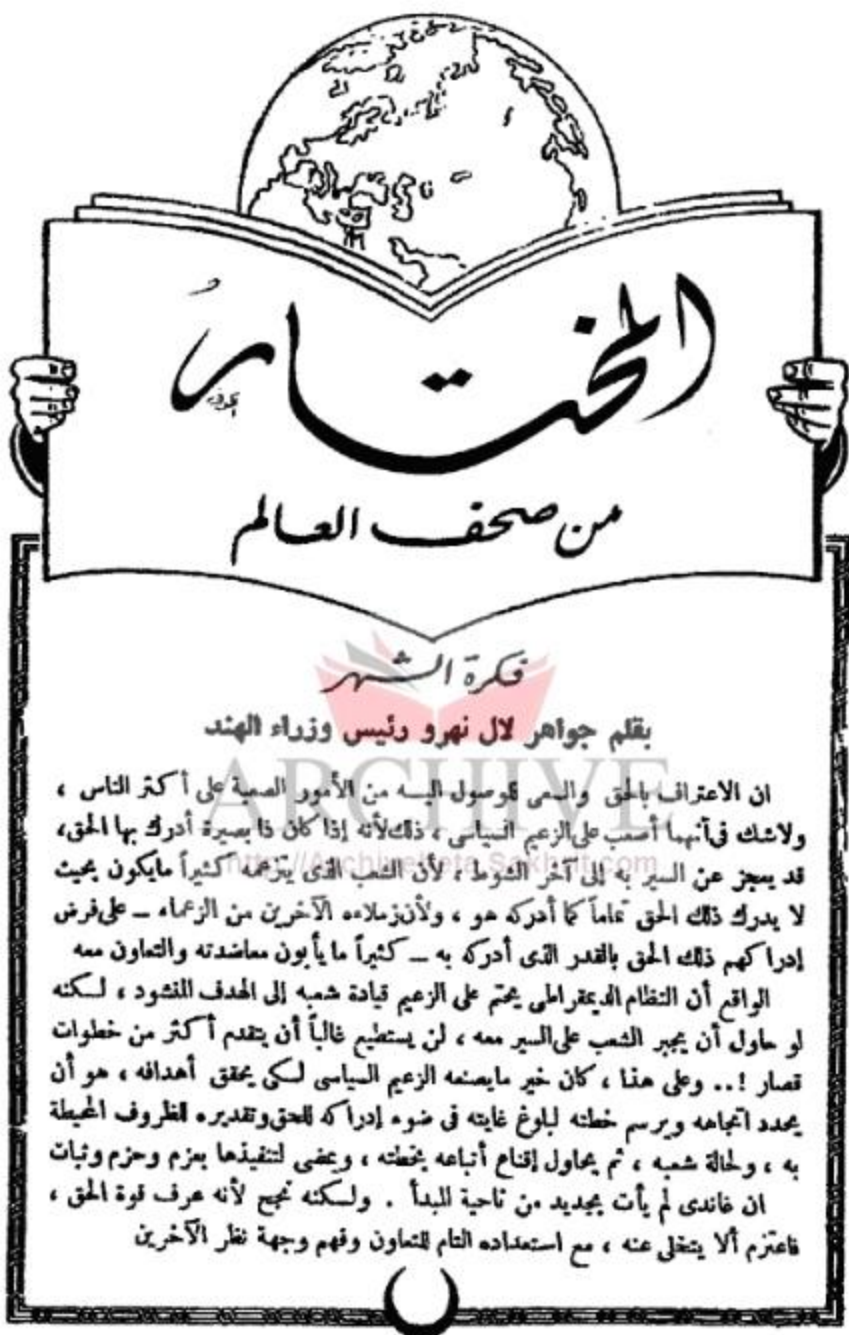 المختار
من صحف العالم
فكرة الشهر
بقلم جواهر لال نهرو رئيس وزراء الهند
ARCHIVE
http://Archivebeta.Sakhrit.com
ان الاعتراف بالحق والسعى للوصول اليه من الأمور الصعبة على أكثر الناس ،
ولاشك فى أنهما أصعب على الزعيم السياسى ، ذلك لأنه إذا كان ذا بصيرة أدرك بها الحق،
قد يعجز عن السير به إلى آخر الشوط ، لأن الشعب الذى يتزعمه كثيراً مايكون بحيث
لا يدرك ذلك الحق تماماً كما أدركه هو ، ولأن زملاءه الآخرين من الزعماء — على فرض
إدراكهم ذلك الحق بالقدر الذى أدركه به — كثيراً ما يأبون معاضدته والتعاون معه
الواقع أن النظام الديمقراطى يحتم على الزعيم قيادة شعبه إلى الهدف المنشود ، لكنه
لو حاول أن يجبر الشعب على السير معه ، لن يستطيع غالباً أن يتقدم أكثر من خطوات
قصار !.. وعلى هذا ، كان خير مايصنعه الزعيم السياسى لكى يحقق أهدافه ، هو أن
يحدد اتجاهه ويرسم خطته لبلوغ غايته فى ضوء إدراكه للحق وتقديره للظروف المحيطة
به ، ولحالة شعبه ، ثم يحاول إقناع أتباعه بخطته ، ويمضى لتنفيذها بعزم وحزم وثبات
ان غاندى لم يأت بجديد من ناحية المبدأ . ولكنه نجح لأنه عرف قوة الحق ،
فاعتزم ألا يتخلى عنه ، مع استعداده التام للتعاون وفهم وجهة نظر الآخرين